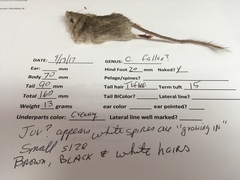 DATE: 7/17/17 GENUS: C.
Ear: mm Hind Foot 20 mm Naked? Y
Body 70 mm Pelage/spines?
Tail 90 mm Tail hair Tufted Term tuft 15
Total 160 mm Tail BiColor? Lateral line?
Weight 13 grams ear color ear pointed?
Underparts color Creamy Lateral line well marked?
Juv? appears white spines are "growing in"
Small size
Brown, BLACK & white hairs